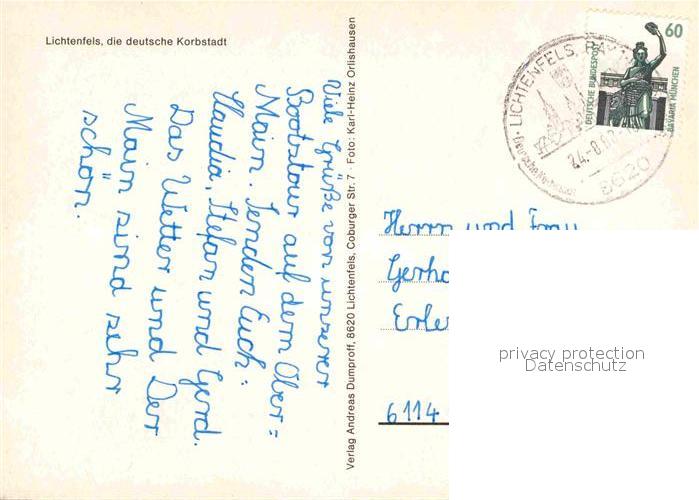 Lichtenfels, die deutsche Korbstadt
Viele Grüße von unserer
Bootstour auf dem Ober=
Main. Senden Euch:
Claudia, Stefan und Gerd.
Das Wetter und Der
Main sind sehr
schön.
Verlag Andreas Dumproff, 8620 Lichtenfels, Coburger Str. 7 · Foto: Karl-Heinz Orlishausen
60
DEUTSCHE BUNDESPOST
BAVARIA MÜNCHEN
LICHTENFELS,
Deutsche Korbstadt
8620
Herrn und Frau
6114
privacy protection
Datenschutz